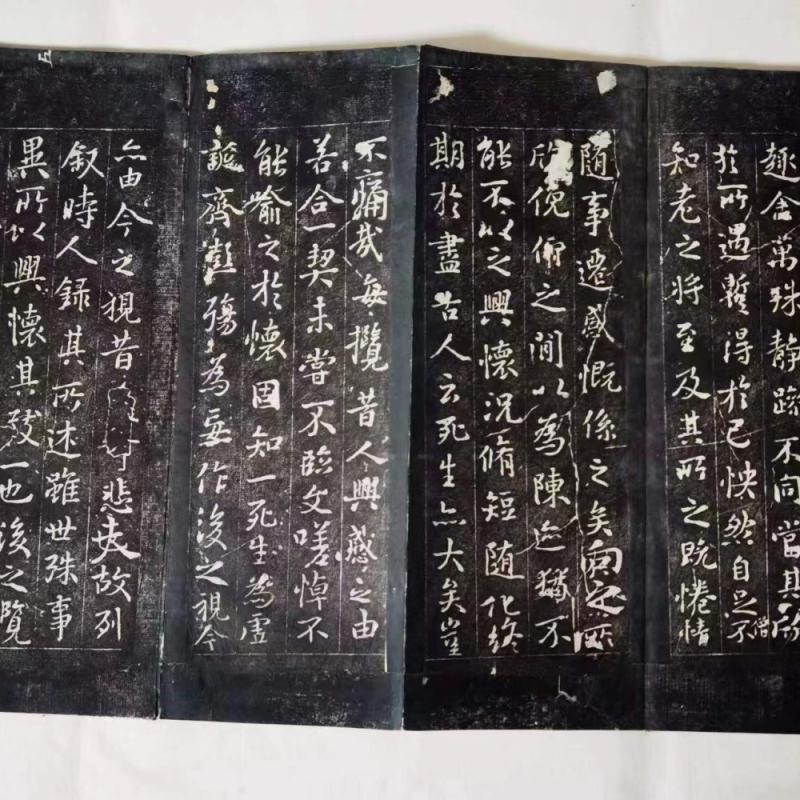 趣舍萬殊静躁不同當其欣
於所遇暫得於己怏然自足不
僧
知老之將至及其所之既惓情
隨事遷感慨係之矣向之所
欣俛仰之閒以為陳迹猶不
能不以之興懷況脩短隨化終
期於盡古人云死生亦大矣豈
不痛哉每攬昔人興感之由
若合一契未嘗不臨文嗟悼不
能喻之於懷固知一死生為虛
誕齊彭殤為妄作後之視今
亦由今之視昔悲夫故列
叙時人錄其所述雖世殊事
異所以興懷其致一也後之覽